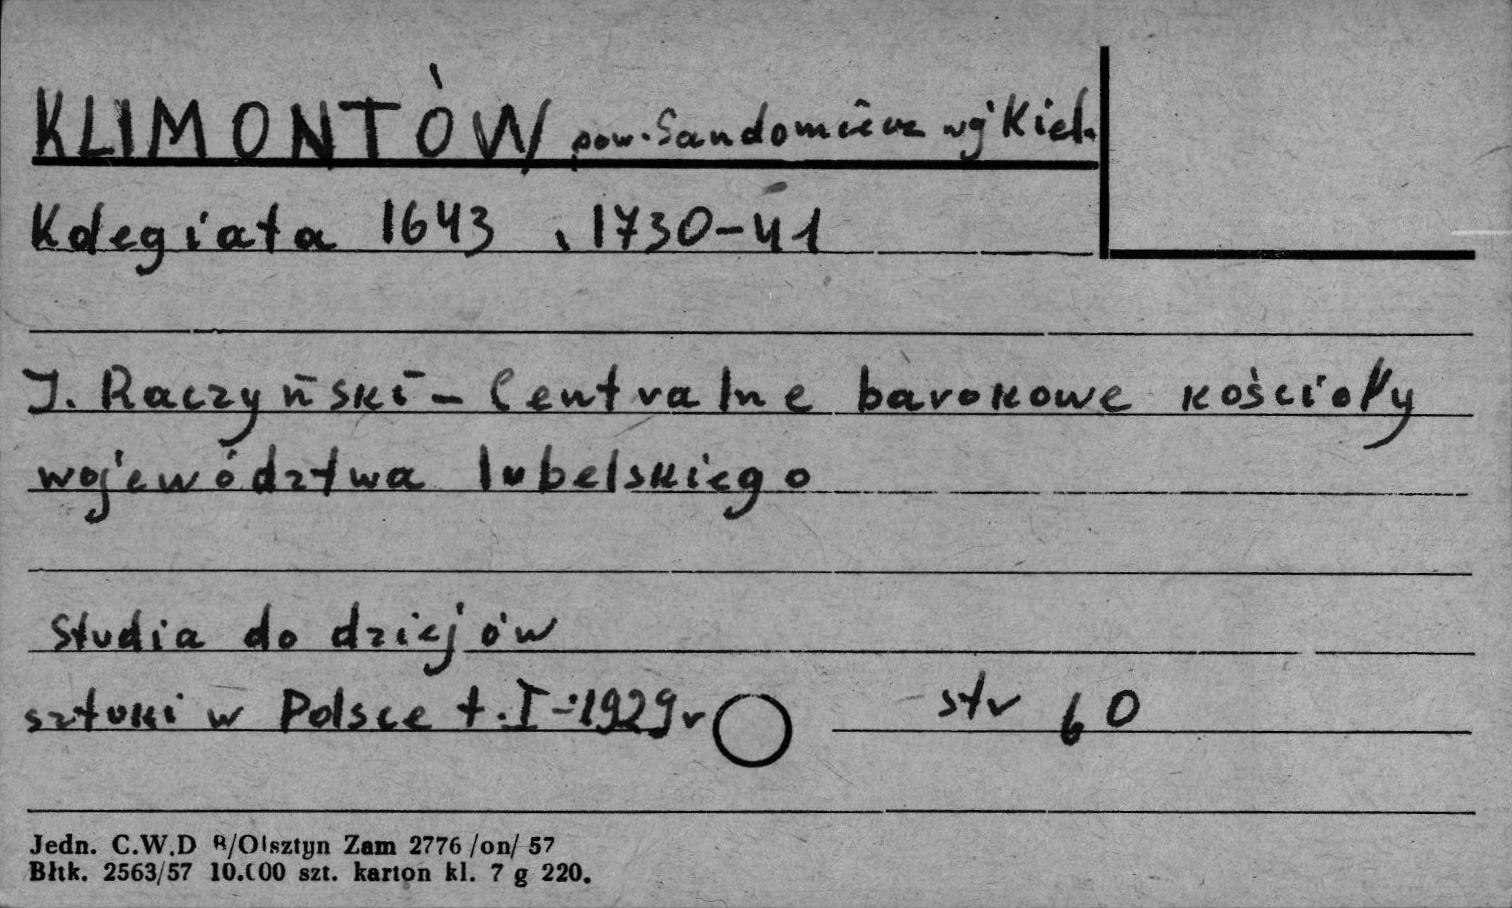 KLIMONTÓW pow. Sandomierz wj Kiel.
Kolegiata 1643, 1730-41
J. Raczyński - Centralne barokowe kościoły
województwa lubelskiego
Studia do dziejów
sztuki w Polsce t. I - 1929 r str 60
Jedn. C.W.D R/Olsztyn Zam 2776 /on/ 57
Błtk. 2563/57 10.000 szt. karton kl. 7 g 220.